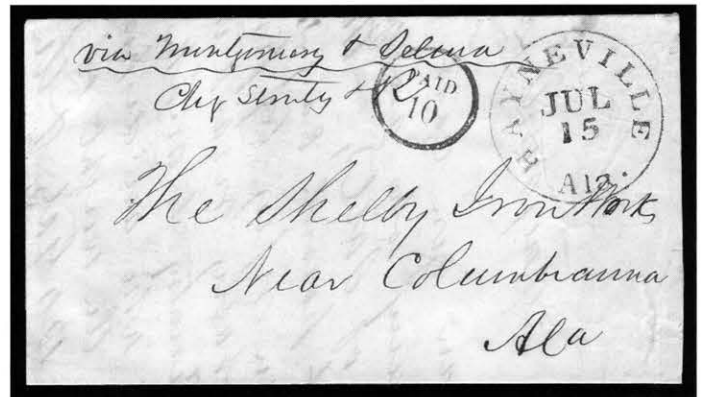 via Montgomery & Selma
PAID
10
HAYNEVILLE
JUL
15
Ala.
The Shelby Iron Works
Near Columbianna
Ala